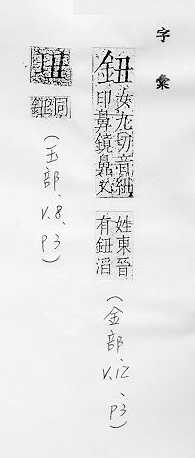 字彙
鈕
女九切音紐
印鼻鏡鼻又
姓東晉
有鈕滔
（金部、V.12、P3）
同
（玉部、V.8、P3）